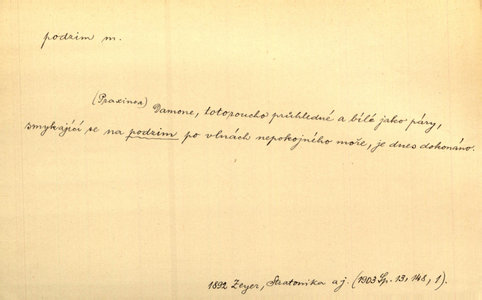 podzim m.
(Praxinea) Damone, totoroucho průhledné a bílé jako páry,
smykající se na podzim po vlnách nepokojného moře, je dnes dokonáno.
1892 Zeyer, Stratonika a j. (1903 Sp. 13, 148, 1).